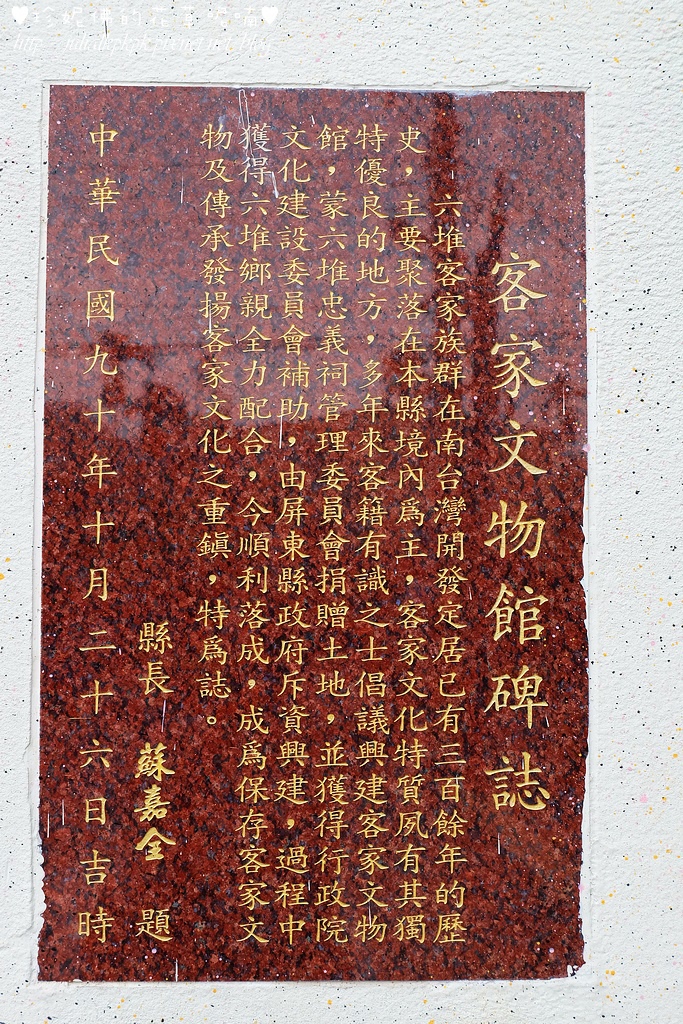 ♥珍妮佛的花草呢喃♥
客家文物館碑誌
六堆客家族群在南台灣開發定居已有三百餘年的歷
史，主要聚落在本縣境內爲主，客家文化特質夙有其獨
特優良的地方，多年來客籍有識之士倡議興建客家文物
館，蒙六堆忠義祠管理委員會捐贈土地，並獲得行政院
文化建設委員會補助，由屏東縣政府斥資興建，過程中
獲得六堆鄉親全力配合，今順利落成，成爲保存客家文
物及傳承發揚客家文化之重鎮，特爲誌。
縣長 蘇嘉全 題
中華民國九十年十月二十六日吉時